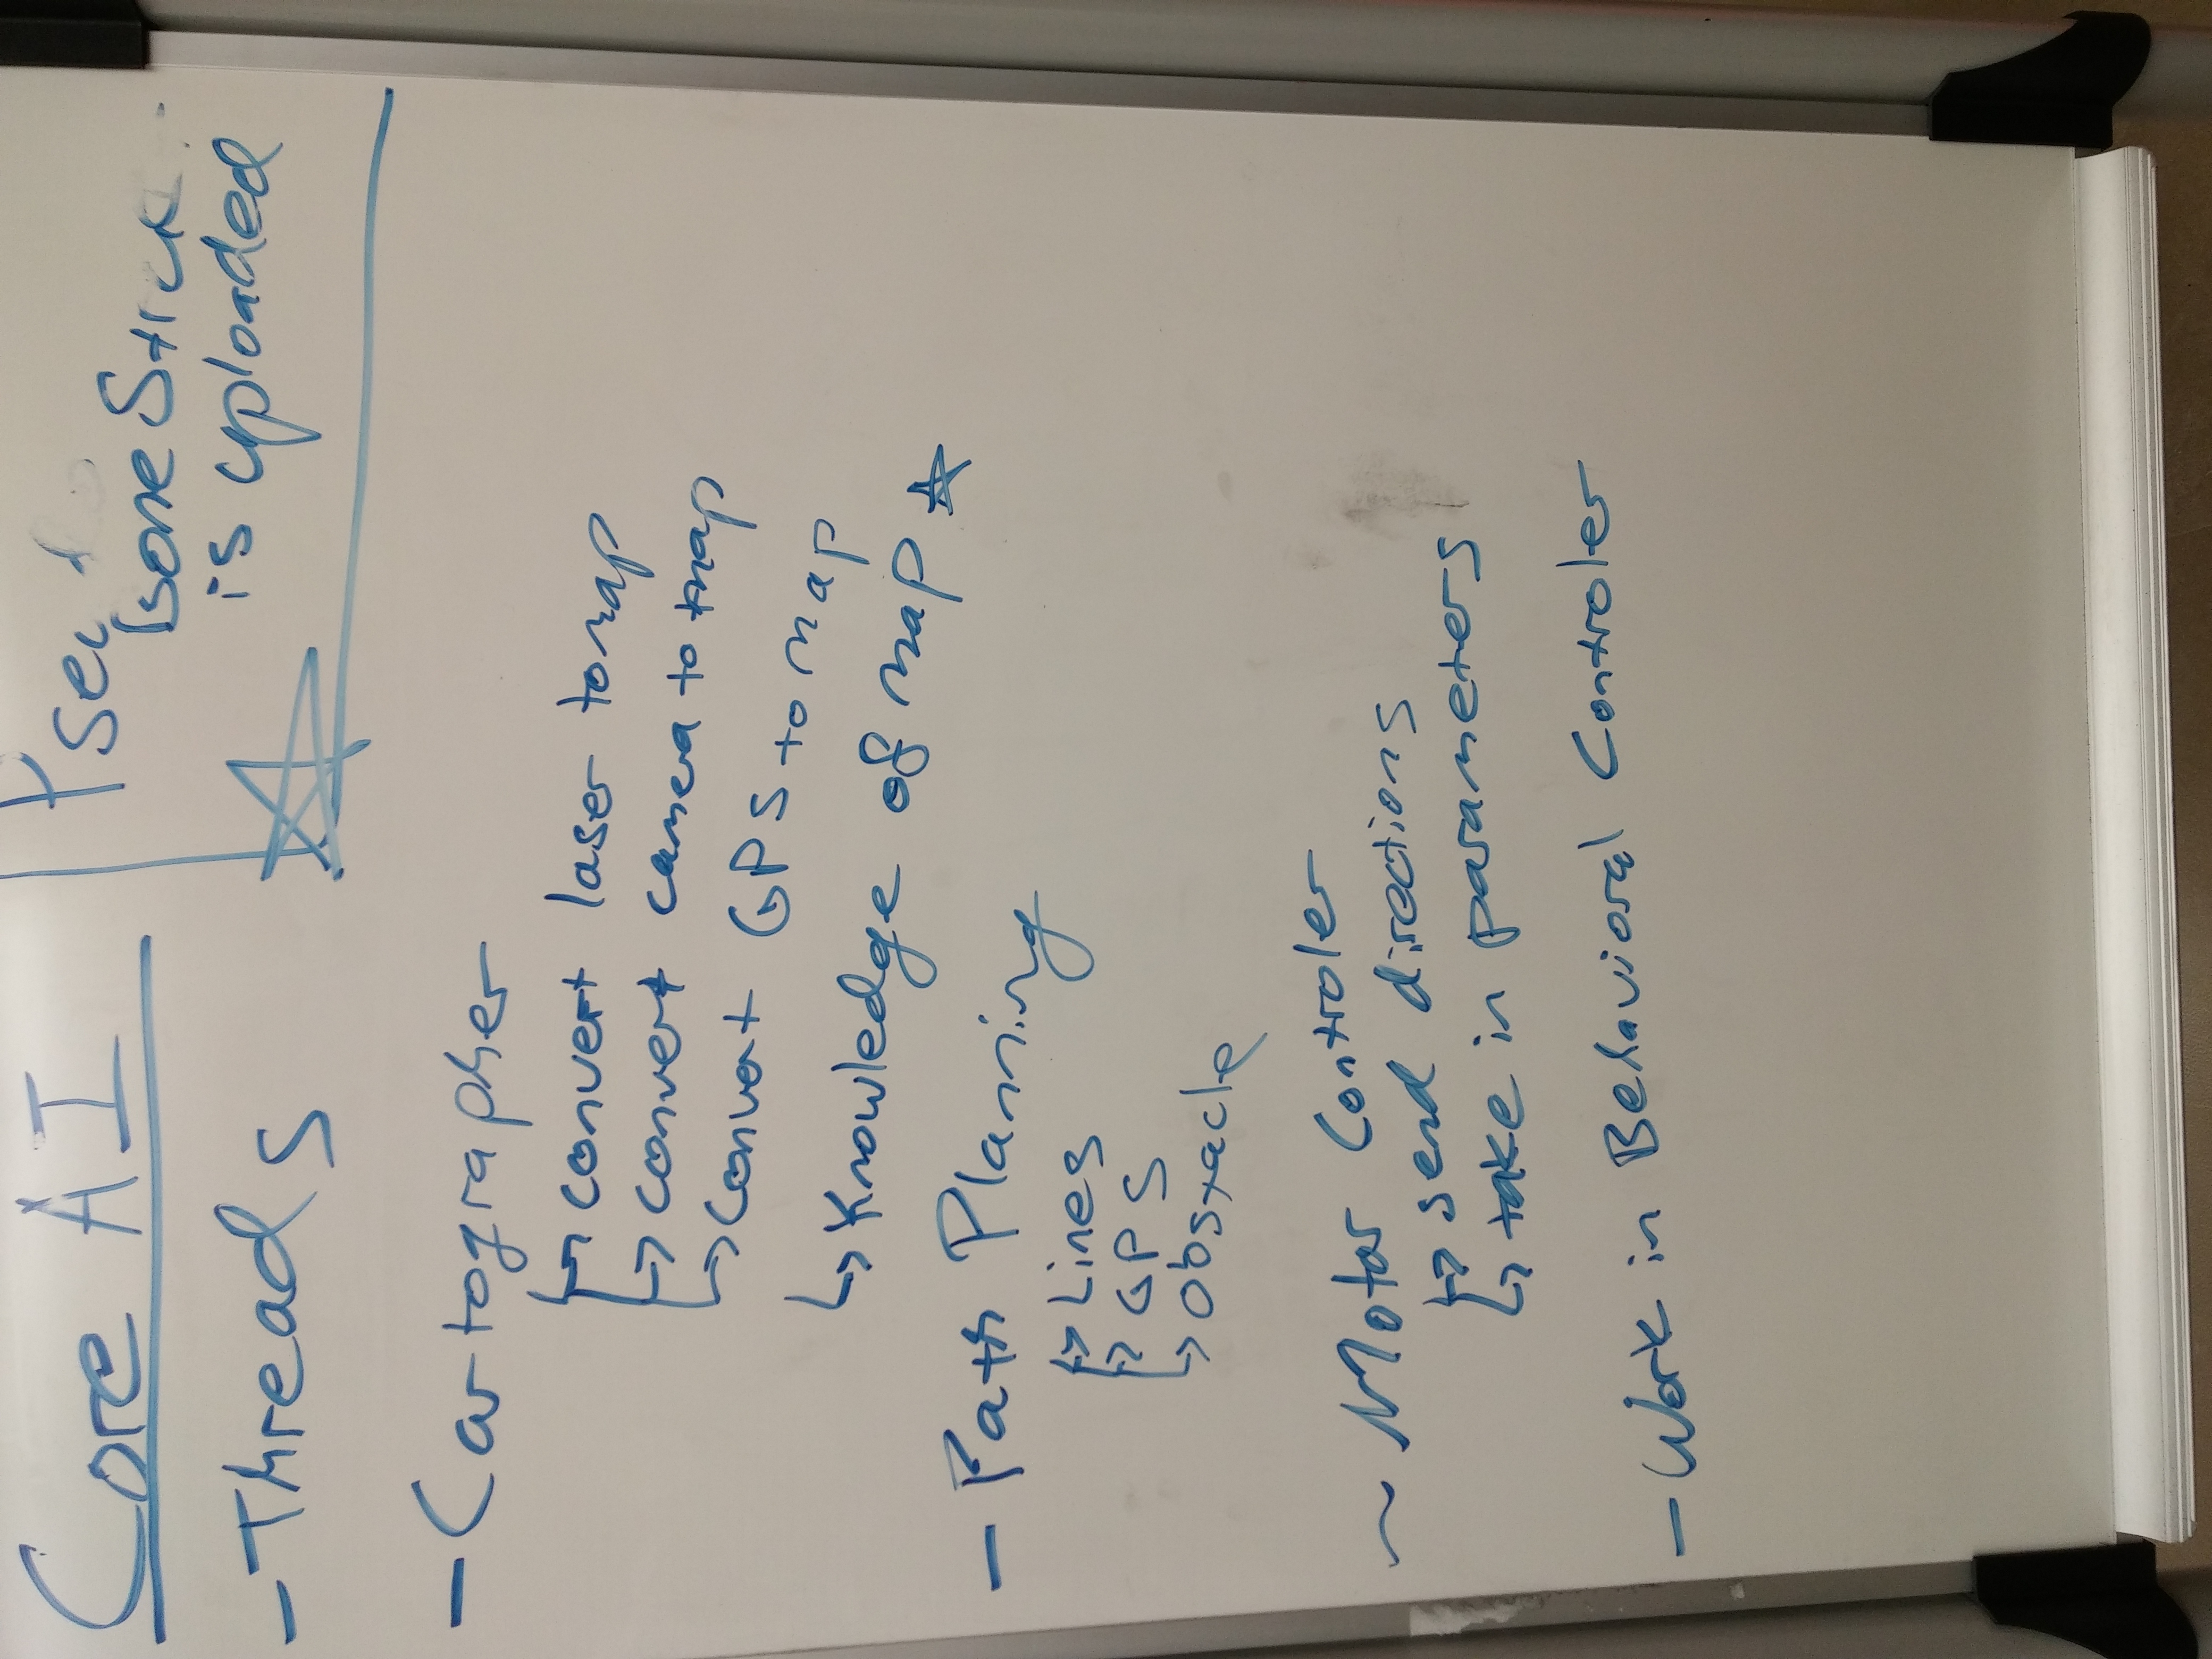 Core AI
- Threads
boneStick
is uploaded
- Cartographer
convert laser to map
convert camera to map
convert GPS to map
Knowledge of map
- Path Planning
Lines
GPS
Obstacle
~ Motor Controler
send directions
take in parameters
- Work in Behavioral Controler